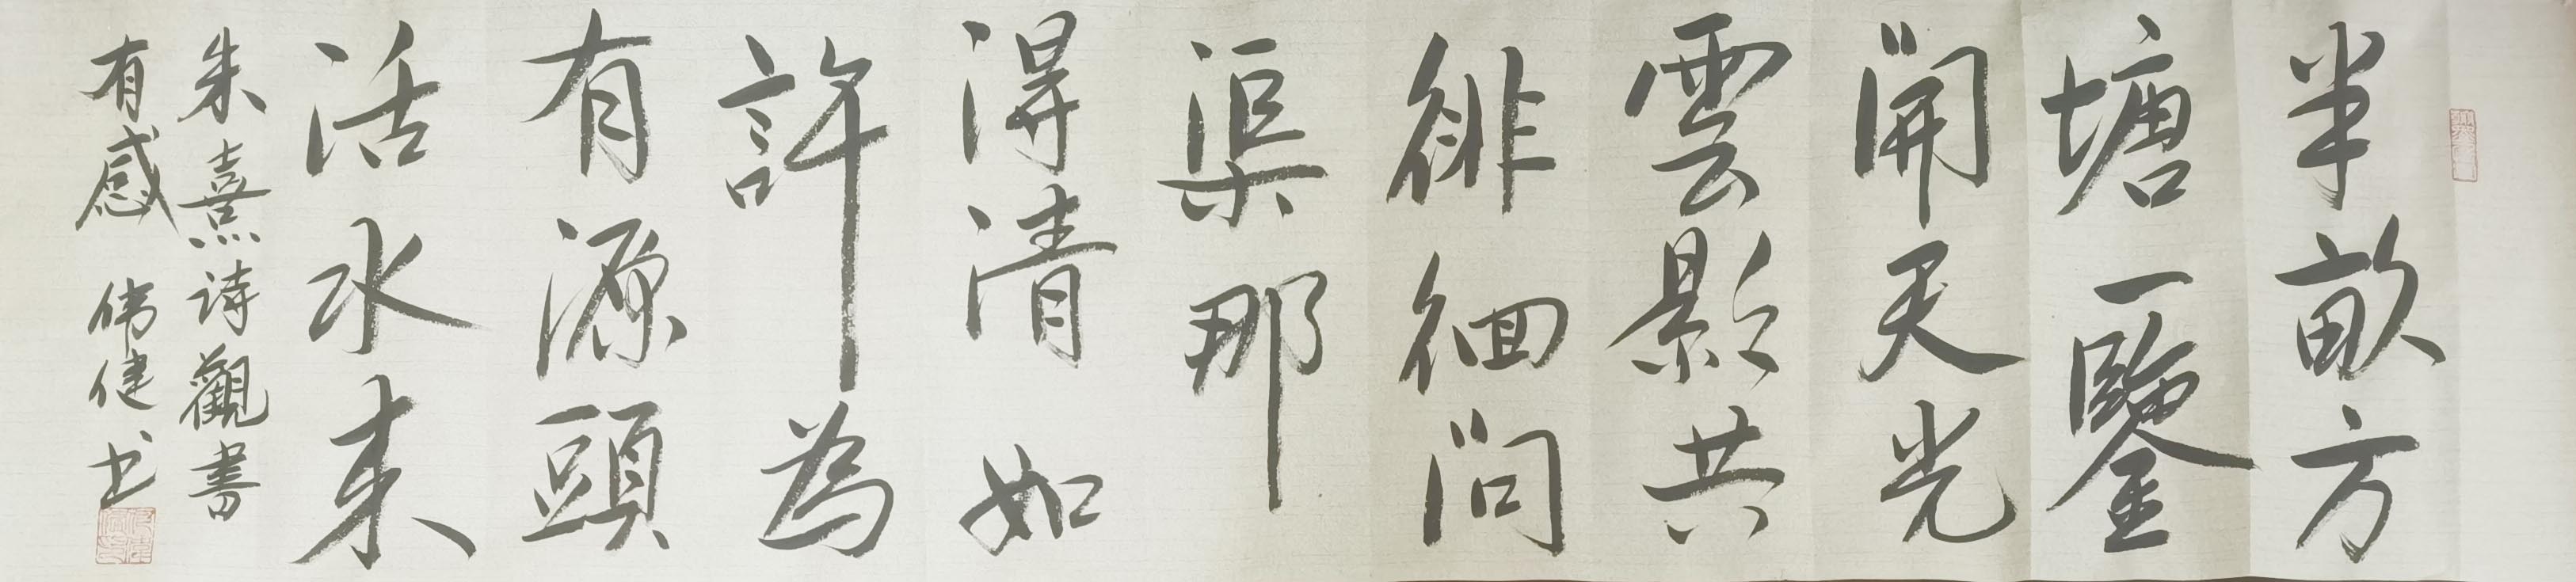 半畝方
塘一鑒
開天光
雲影共
徘徊問
渠那
得清如
許為
有源頭
活水来
朱熹诗觀書
有感 伟健书